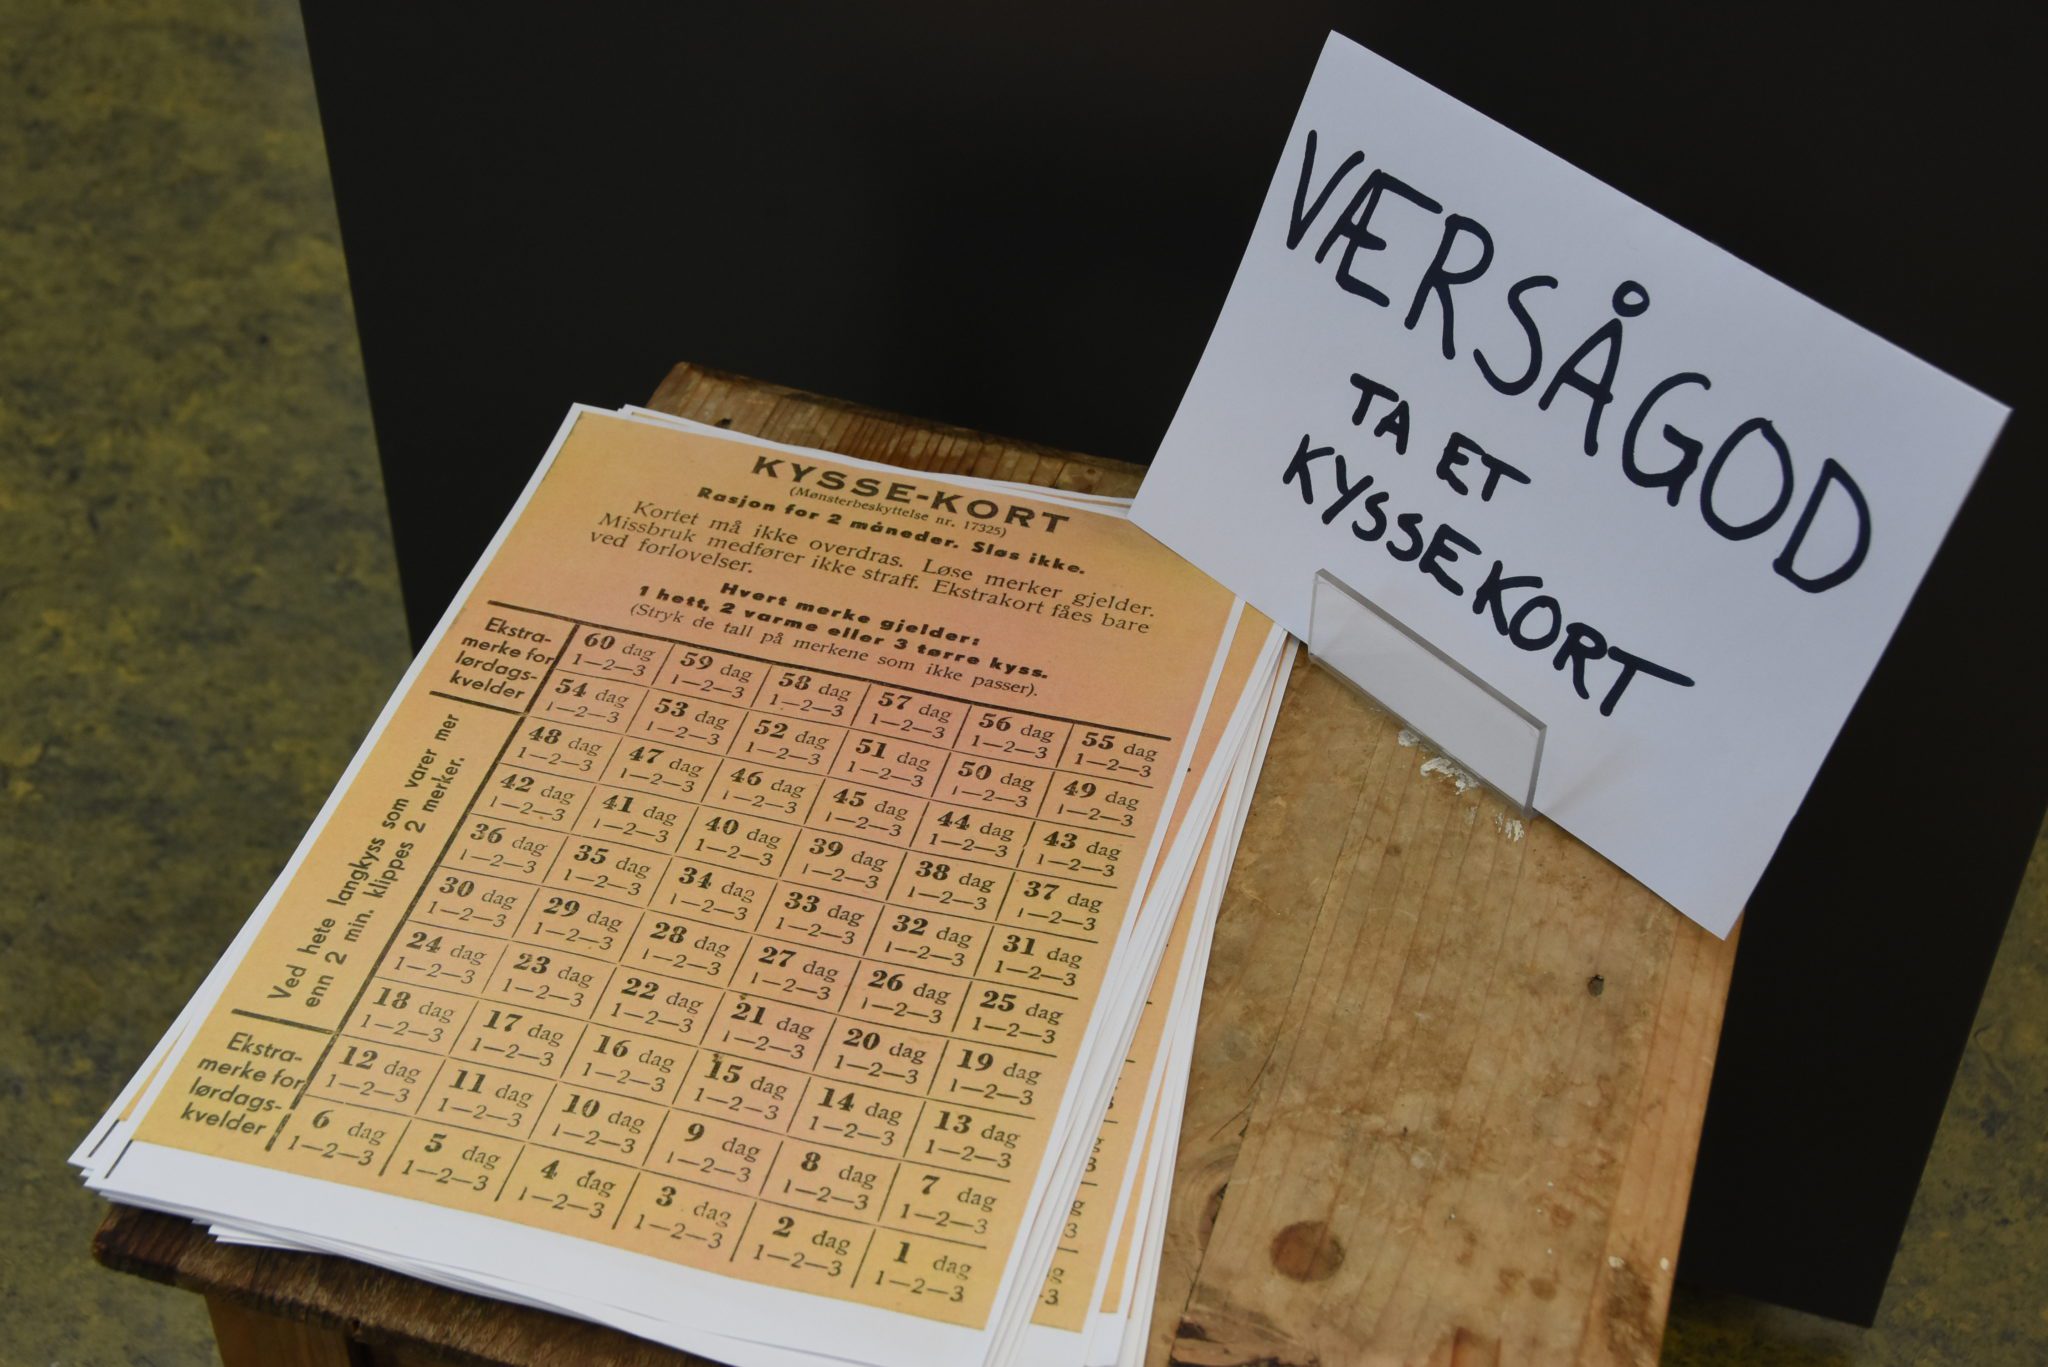 VÆRSÅGOD
TA ET
KYSSEKORT
KYSSE-KORT
(Mønsterbeskyttelse nr. 17325)
Rasjon for 2 måneder. Sløs ikke.
Kortet må ikke overdras. Løse merker gjelder.
Missbruk medfører ikke straff. Ekstrakort fåes bare
ved forlovelser.
Hvert merke gjelder:
1 hett, 2 varme eller 3 tørre kyss.
(Stryk de tall på merkene som ikke passer).
Ekstra-
merke for
lørdags-
kvelder
60 dag 59 dag 58 dag 57 dag 56 dag 55 dag
1—2—3 1—2—3 1—2—3 1—2—3 1—2—3 1—2—3
54 dag 53 dag 52 dag 51 dag 50 dag 49 dag
1—2—3 1—2—3 1—2—3 1—2—3 1—2—3 1—2—3
Ved hete langkyss som varer mer
enn 2 min. klippes 2 merker.
48 dag 47 dag 46 dag 45 dag 44 dag 43 dag
1—2—3 1—2—3 1—2—3 1—2—3 1—2—3 1—2—3
42 dag 41 dag 40 dag 39 dag 38 dag 37 dag
1—2—3 1—2—3 1—2—3 1—2—3 1—2—3 1—2—3
36 dag 35 dag 34 dag 33 dag 32 dag 31 dag
1—2—3 1—2—3 1—2—3 1—2—3 1—2—3 1—2—3
30 dag 29 dag 28 dag 27 dag 26 dag 25 dag
1—2—3 1—2—3 1—2—3 1—2—3 1—2—3 1—2—3
24 dag 23 dag 22 dag 21 dag 20 dag 19 dag
1—2—3 1—2—3 1—2—3 1—2—3 1—2—3 1—2—3
18 dag 17 dag 16 dag 15 dag 14 dag 13 dag
1—2—3 1—2—3 1—2—3 1—2—3 1—2—3 1—2—3
Ekstra-
merke for
lørdags-
kvelder
12 dag 11 dag 10 dag 9 dag 8 dag 7 dag
1—2—3 1—2—3 1—2—3 1—2—3 1—2—3 1—2—3
6 dag 5 dag 4 dag 3 dag 2 dag 1 dag
1—2—3 1—2—3 1—2—3 1—2—3 1—2—3 1—2—3